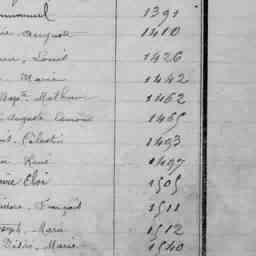 mmanuel 1391
Auguste 1410
Louis 1426
Marie 1442
Bapte Mathurin 1462
Auguste 1465
Célestin 1493
René 1497
Eloi 1505
François 1511
Joseph Marie 1512
Désiré Marie 1540